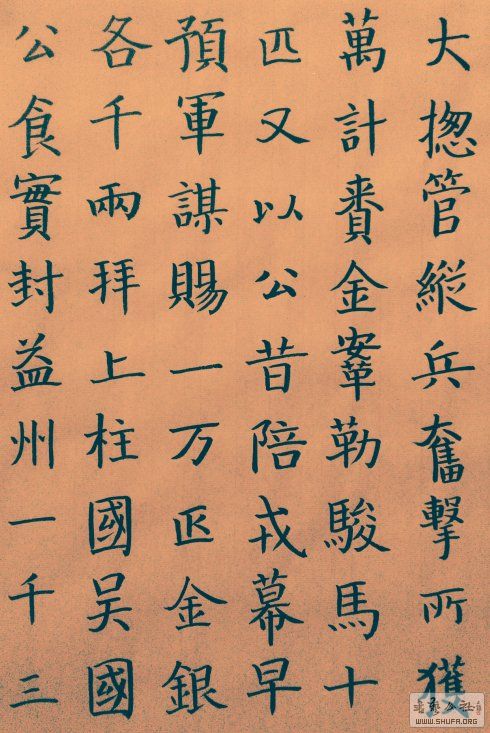 大揔管縱兵奮擊所獲
萬計賚金鞌勒駿馬十
匹又以公昔陪戎幕早
預軍謀賜一万匹金銀
各千兩拜上柱國吴國
公食實封益州一千三
WWW.SHUFA.ORG